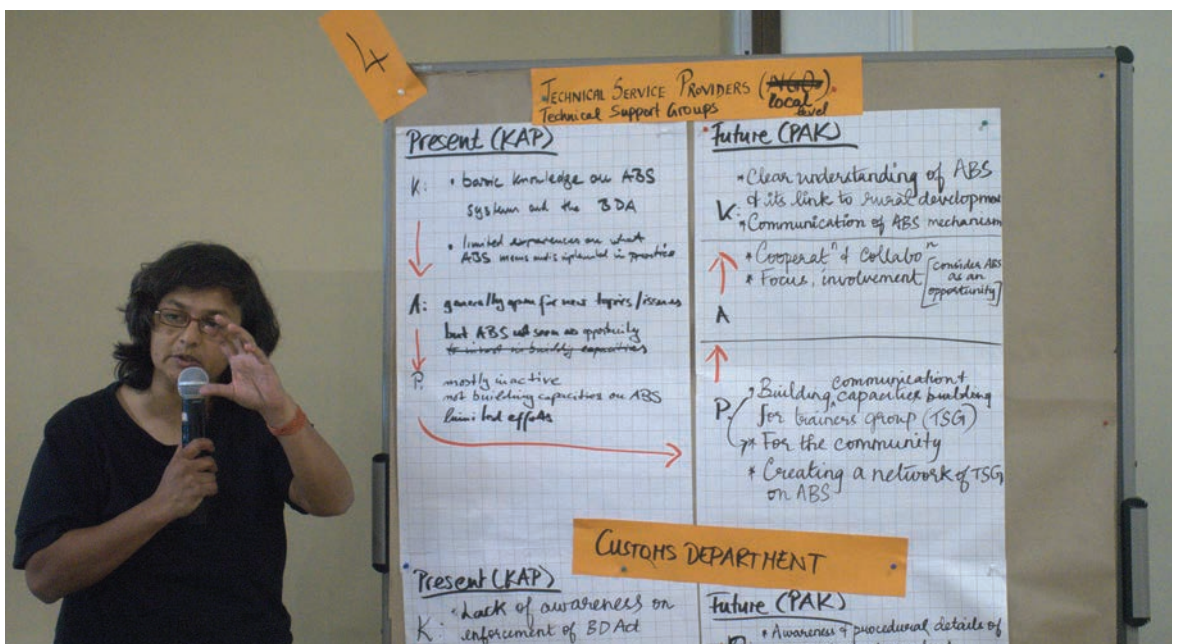 4
TECHNICAL SERVICE PROVIDERS (NGOs)
Technical Support Groups local level
Present (KAP)
K: • basic knowledge on ABS
system and the BDA
• limited experiences on what
ABS means and is implemented in practice
A: generally open for new topics/issues
but ABS not seen as opportunity
to invest in building capacities
P: mostly inactive
not building capacities on ABS
limited efforts
Future (PAK)
* Clear understanding of ABS
K: & its link to rural developmen
* Communication of ABS mechanism
* Cooperatⁿ & Collaboⁿ
* Focus, involvement [consider ABS
as an
opportunity]
A
P. * Building communication +
capacities building
for trainers group (TSG)
* For the community
* Creating a network of TSG
on ABS
CUSTOMS DEPARTMENT
Present (KAP)
K: • Lack of awareness on
enforcement of BD Act
Future (PAK)
* Awareness & procedural details of